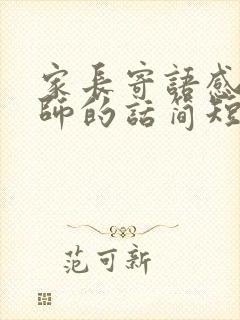 家長寄語感
師的話简短
范可新